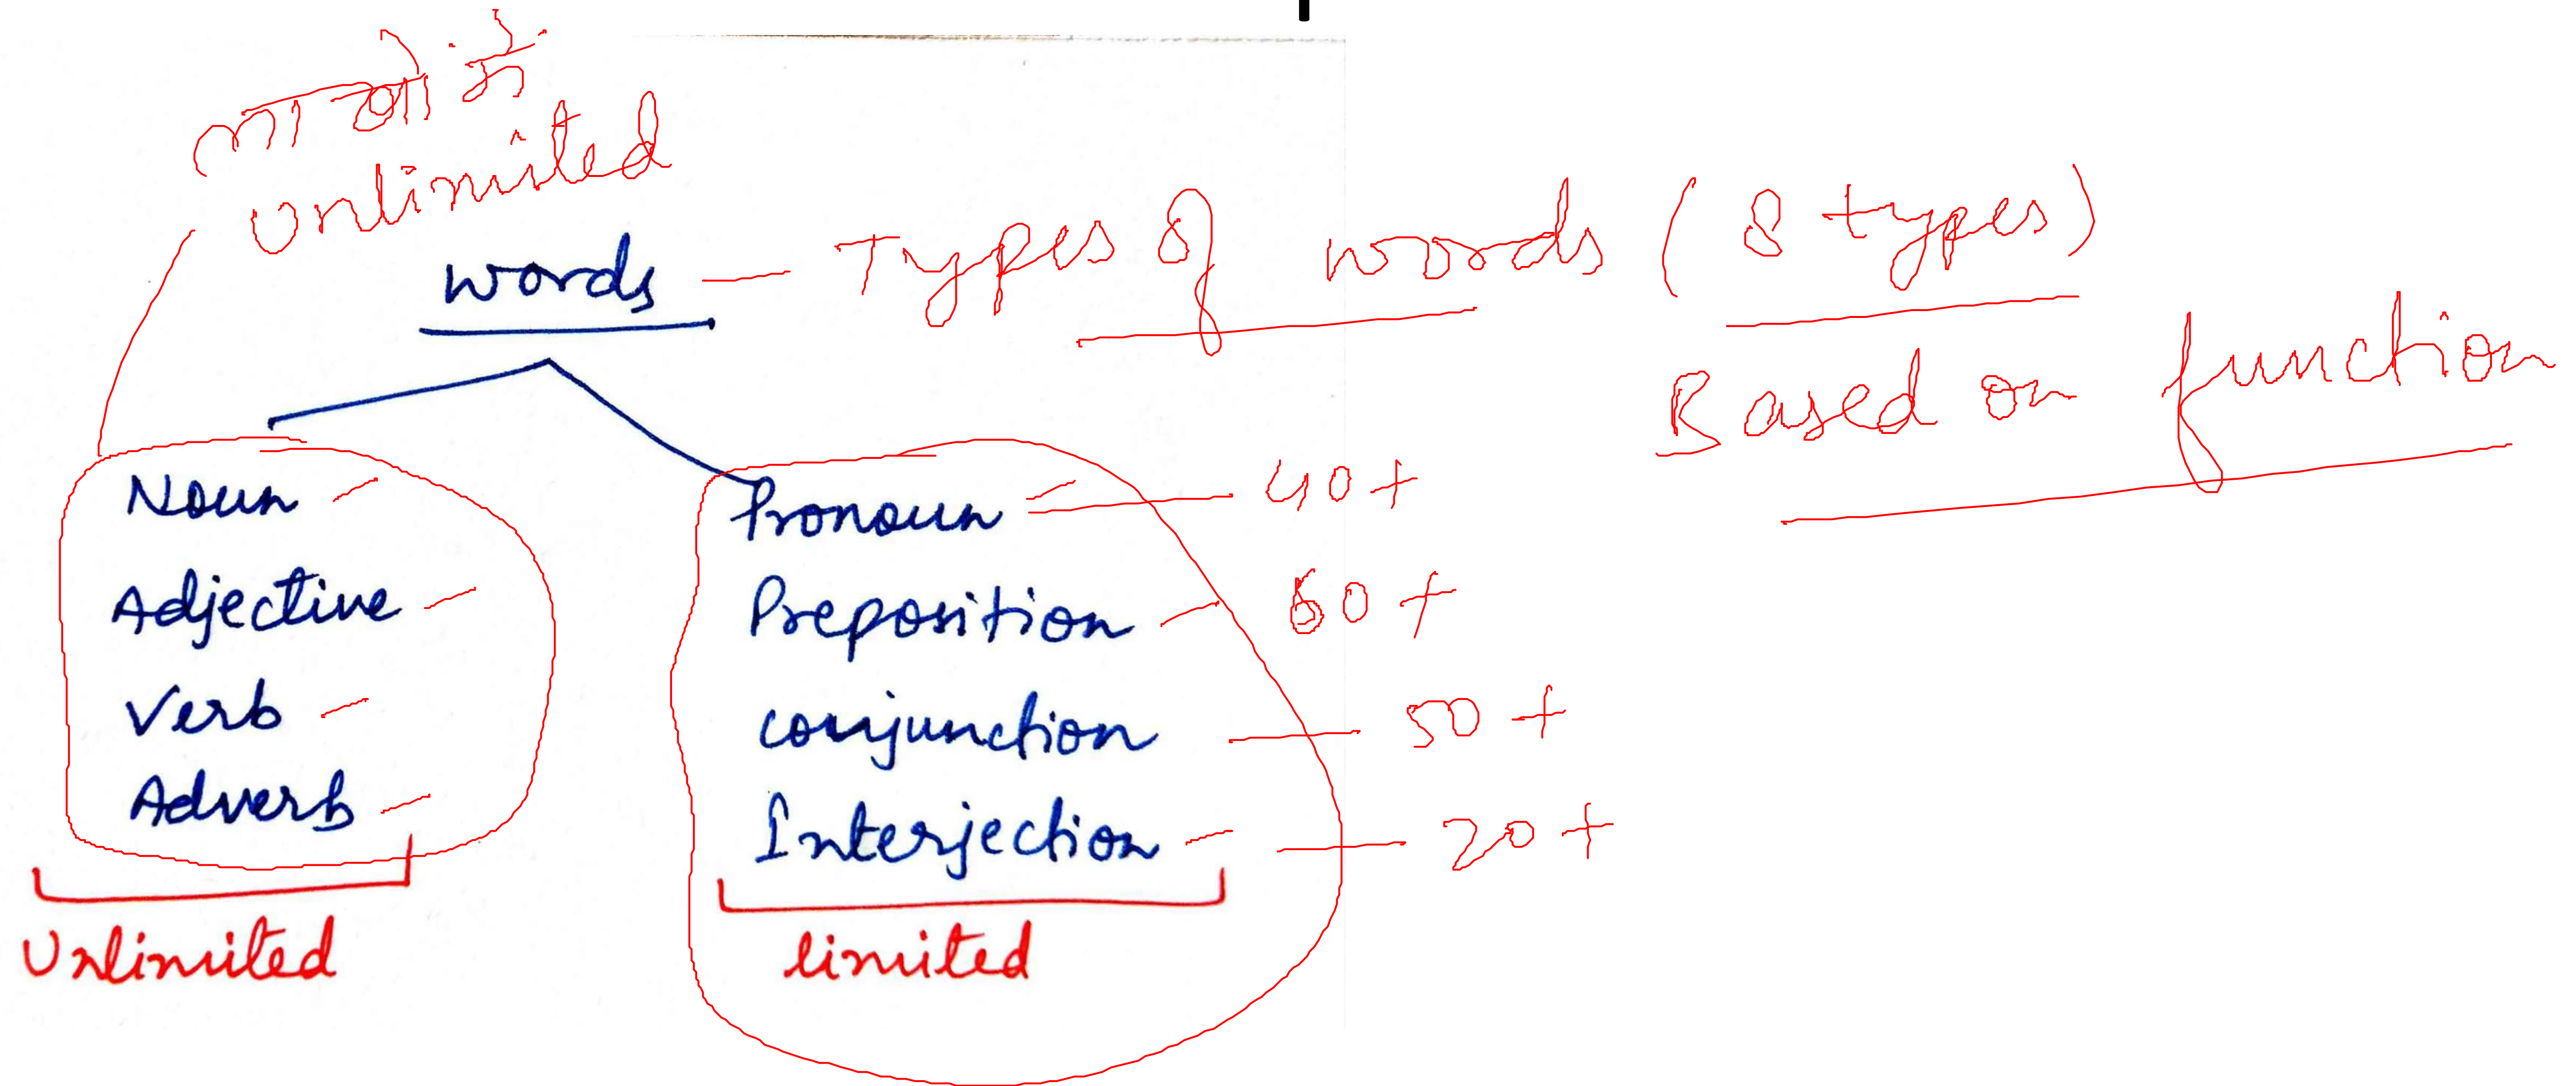 लाखों में
Unlimited
words – Types of words (8 types)
Based on function
Noun –
Adjective –
Verb –
Adverb –
Unlimited
Pronoun = 40+
Preposition – 60+
conjunction – 50+
Interjection – 20+
limited